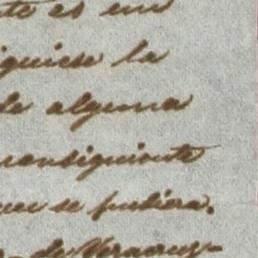 te es un
iguiese la
de alguna
consiguiente
que se pudiera.
de Veracruz-